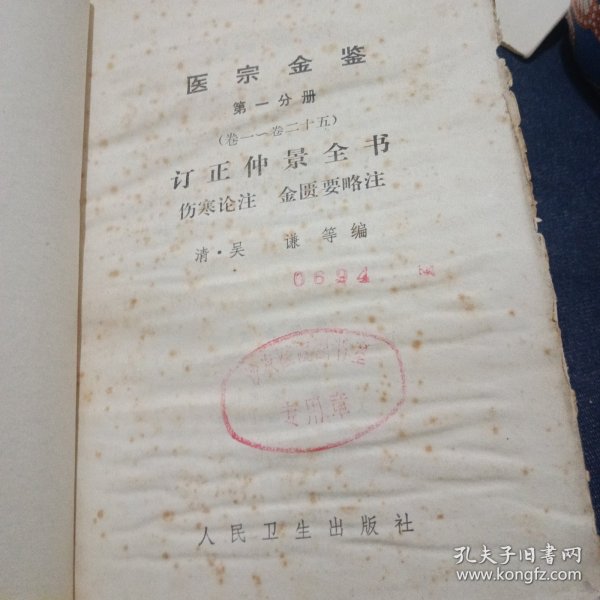 医宗金鉴
第一分册
(卷一～卷二十五)
订正仲景全书
伤寒论注 金匮要略注
清·吴 谦等编
0624
专用章
人民卫生出版社
孔夫子旧书网
www.kongfz.com